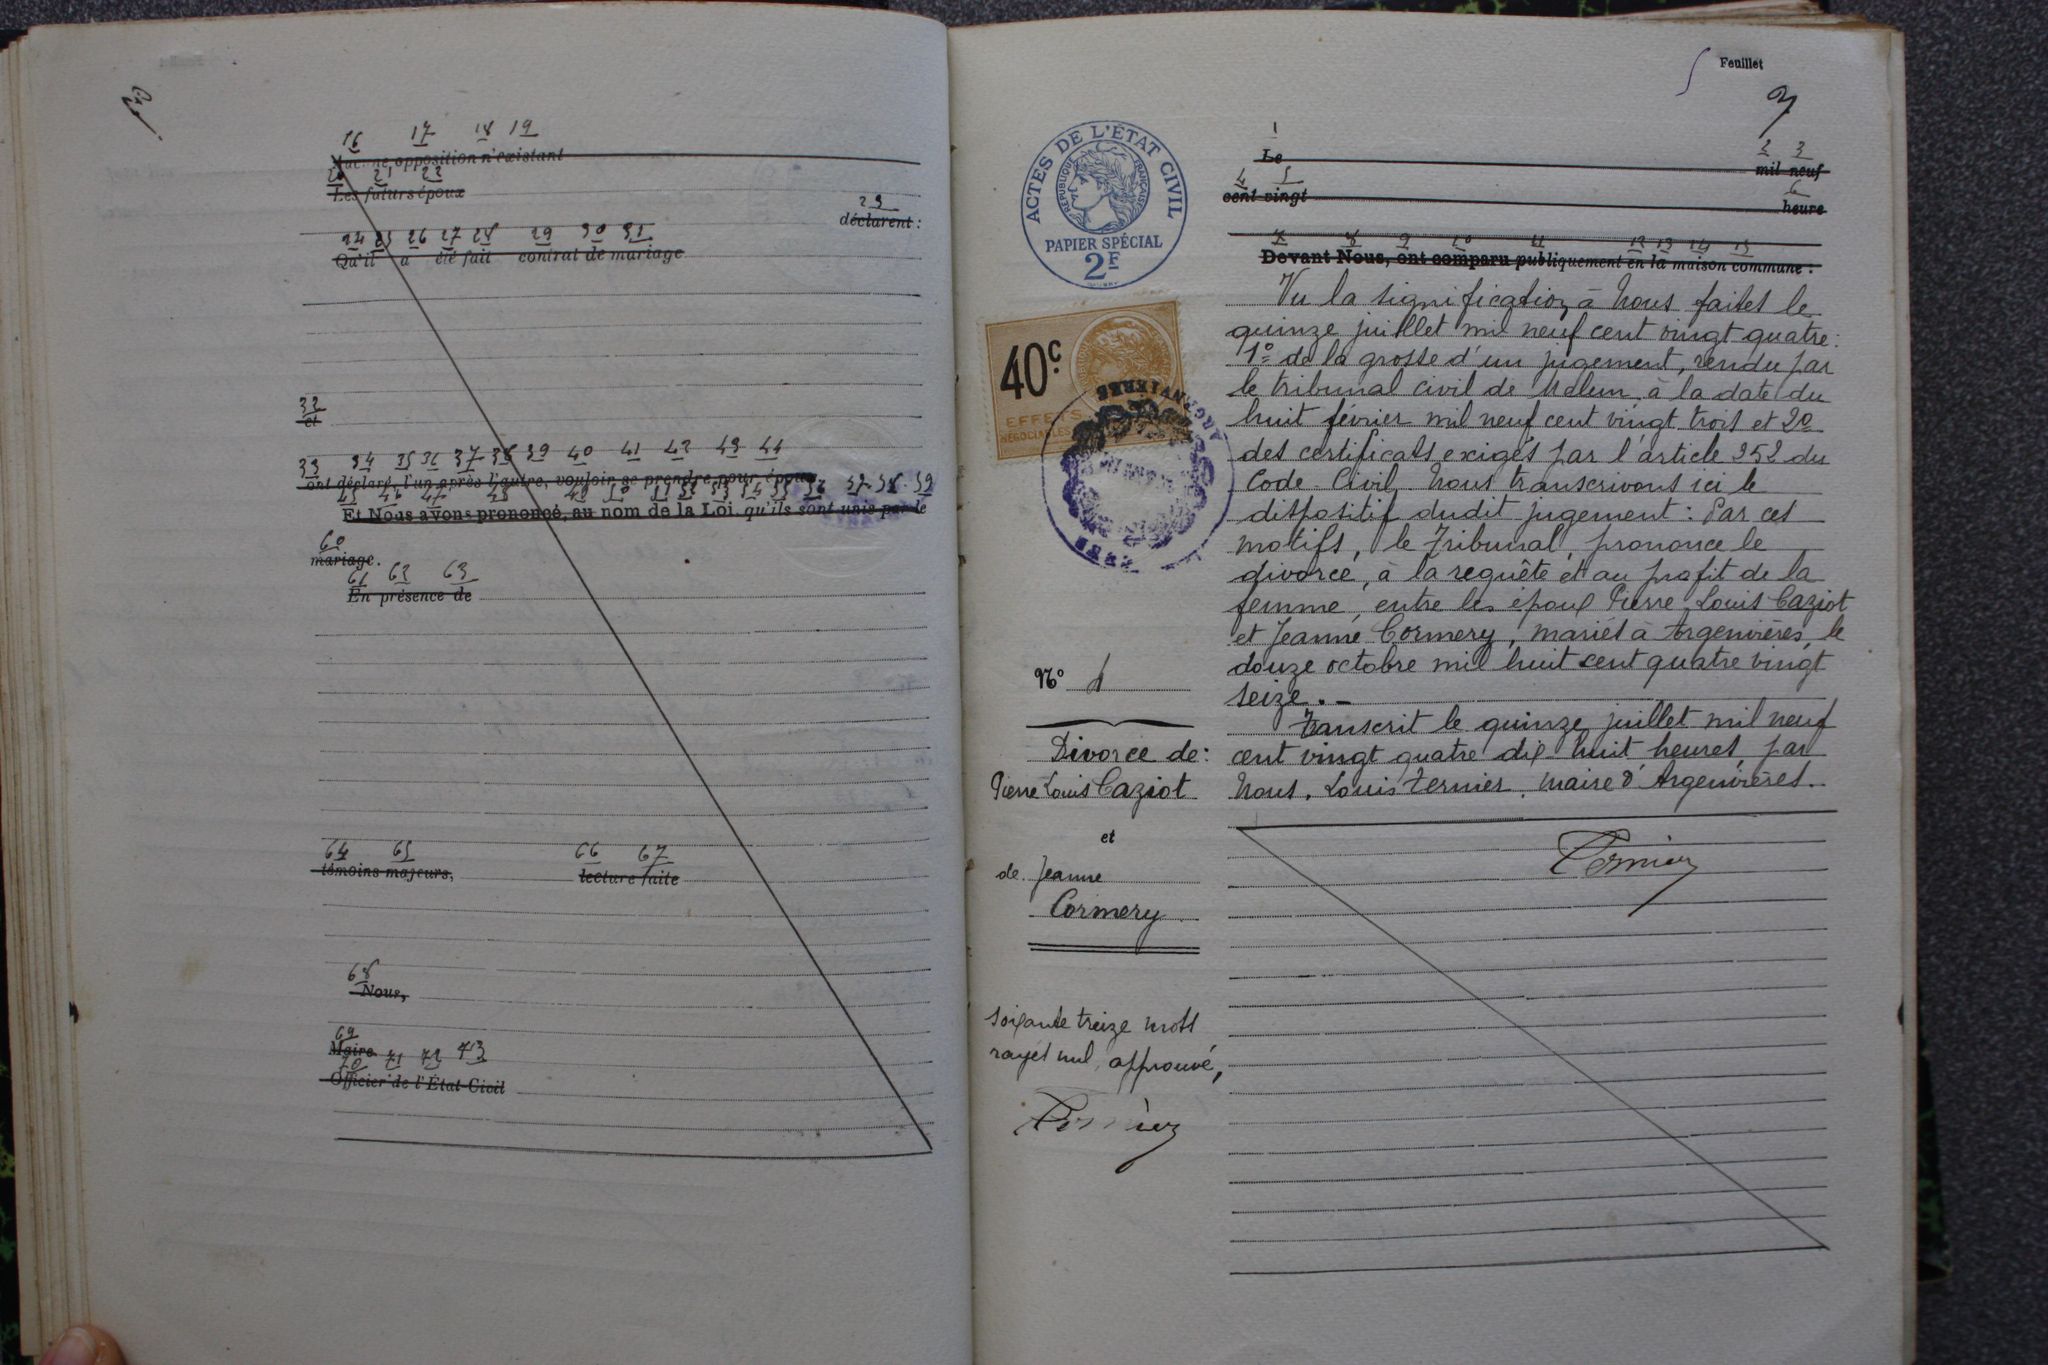 16 17 18 19
Aucune opposition n'existant
20 21 22
Les futurs époux
23
déclarent :
24 25 26 27 28 29 30 31
Qu'il a été fait contrat de mariage
32
et
33 34 35 36 37 38 39 40 41 42 43 44
ont déclaré, l'un après l'autre, vouloir se prendre pour époux
45 46 47 48 49 50 51 52 53 54 55 56 57 58 59
Et Nous avons prononcé, au nom de la Loi qu'ils sont unis par le
60
mariage.
61 62 63
En présence de
64 65 66 67
témoins majeurs, lecture faite
68
Nous,
69
Maire
70 71 72 73
Officier de l'État Civil
Feuillet
3
ACTES DE L'ÉTAT CIVIL
RÉPUBLIQUE FRANÇAISE
PAPIER SPÉCIAL
2F
40c
EFFETS
NÉGOCIABLES
ARGENVIÈRES
1
Le
2 3
mil neuf
4 5
cent vingt
6
heure
7 8 9 10 11 12 13 14 15
Devant Nous, ont comparu publiquement en la maison commune :
Vu la signification à Nous faites le
quinze juillet mil neuf cent vingt quatre :
1° de la grosse d'un jugement, rendu par
le tribunal civil de Melun, à la date du
huit février mil neuf cent vingt trois et 2°
des certificats exigés par l'article 252 du
Code Civil. Nous transcrivons ici le
dispositif dudit jugement : Par ces
motifs, le Tribunal, prononce le
divorce, à la requête et au profit de la
femme, entre les époux Pierre Louis Caziot
et Jeanne Cormery, mariés à Argenvières, le
douze octobre mil huit cent quatre vingt
seize. –
Transcrit le quinze juillet mil neuf
cent vingt quatre dix-huit heures par
Nous, Louis Ternier, maire d'Argenvières.
Ternier
N°
Divorce de :
Pierre Louis Caziot
et
de Jeanne
Cormery
soixante treize mots
rayés nul, approuvé,
Ternier